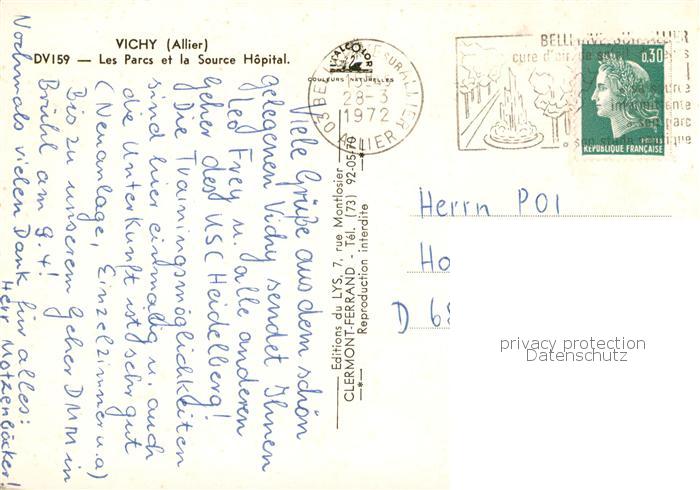 VICHY (Allier)
DV159 — Les Parcs et la Source Hôpital.
COULEURS NATURELLES
28-3
1972
03 ALLIER
BELLERIVE-SUR-ALLIER
cure d'air de
sa source
son parc
son stade
0,30
POSTES
REPUBLIQUE FRANÇAISE
Viele Grüße aus dem schön
gelegenen Vichy sendet Ihnen
Leo Frey u. alle anderen
Geher des USC Heidelberg!
Die Trainingsmöglichkeiten
sind hier einmalig u. auch
die Unterkunft ist sehr gut
(Neuanlage, Einzelzimmer u.a)
Bis zu unserem Geher DMM in
Brühl am 9.4!
Nochmals vielen Dank für alles:
Herr Motzenbäcker!
Editions du LYS, 7, rue Montlosier
CLERMONT-FERRAND - Tél. (73) 92-05-70
Reproduction interdite
Herrn POI
Ho
D 68
privacy protection
Datenschutz